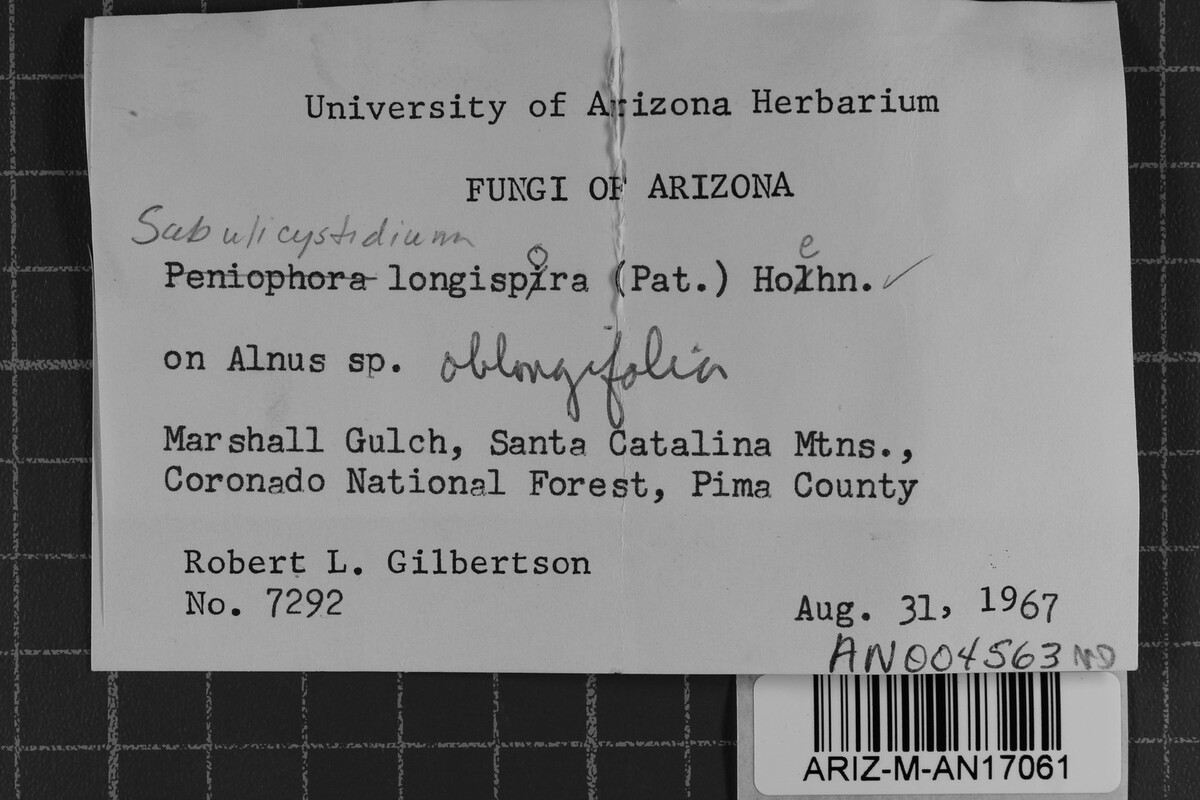 University of Arizona Herbarium
FUNGI OF ARIZONA
Subulicystidium
Peniophora longispora (Pat.) Hoehn. ✓
on Alnus sp. oblongifolia
Marshall Gulch, Santa Catalina Mtns.,
Coronado National Forest, Pima County
Robert L. Gilbertson
No. 7292
Aug. 31, 1967
AN004563
ARIZ-M-AN17061